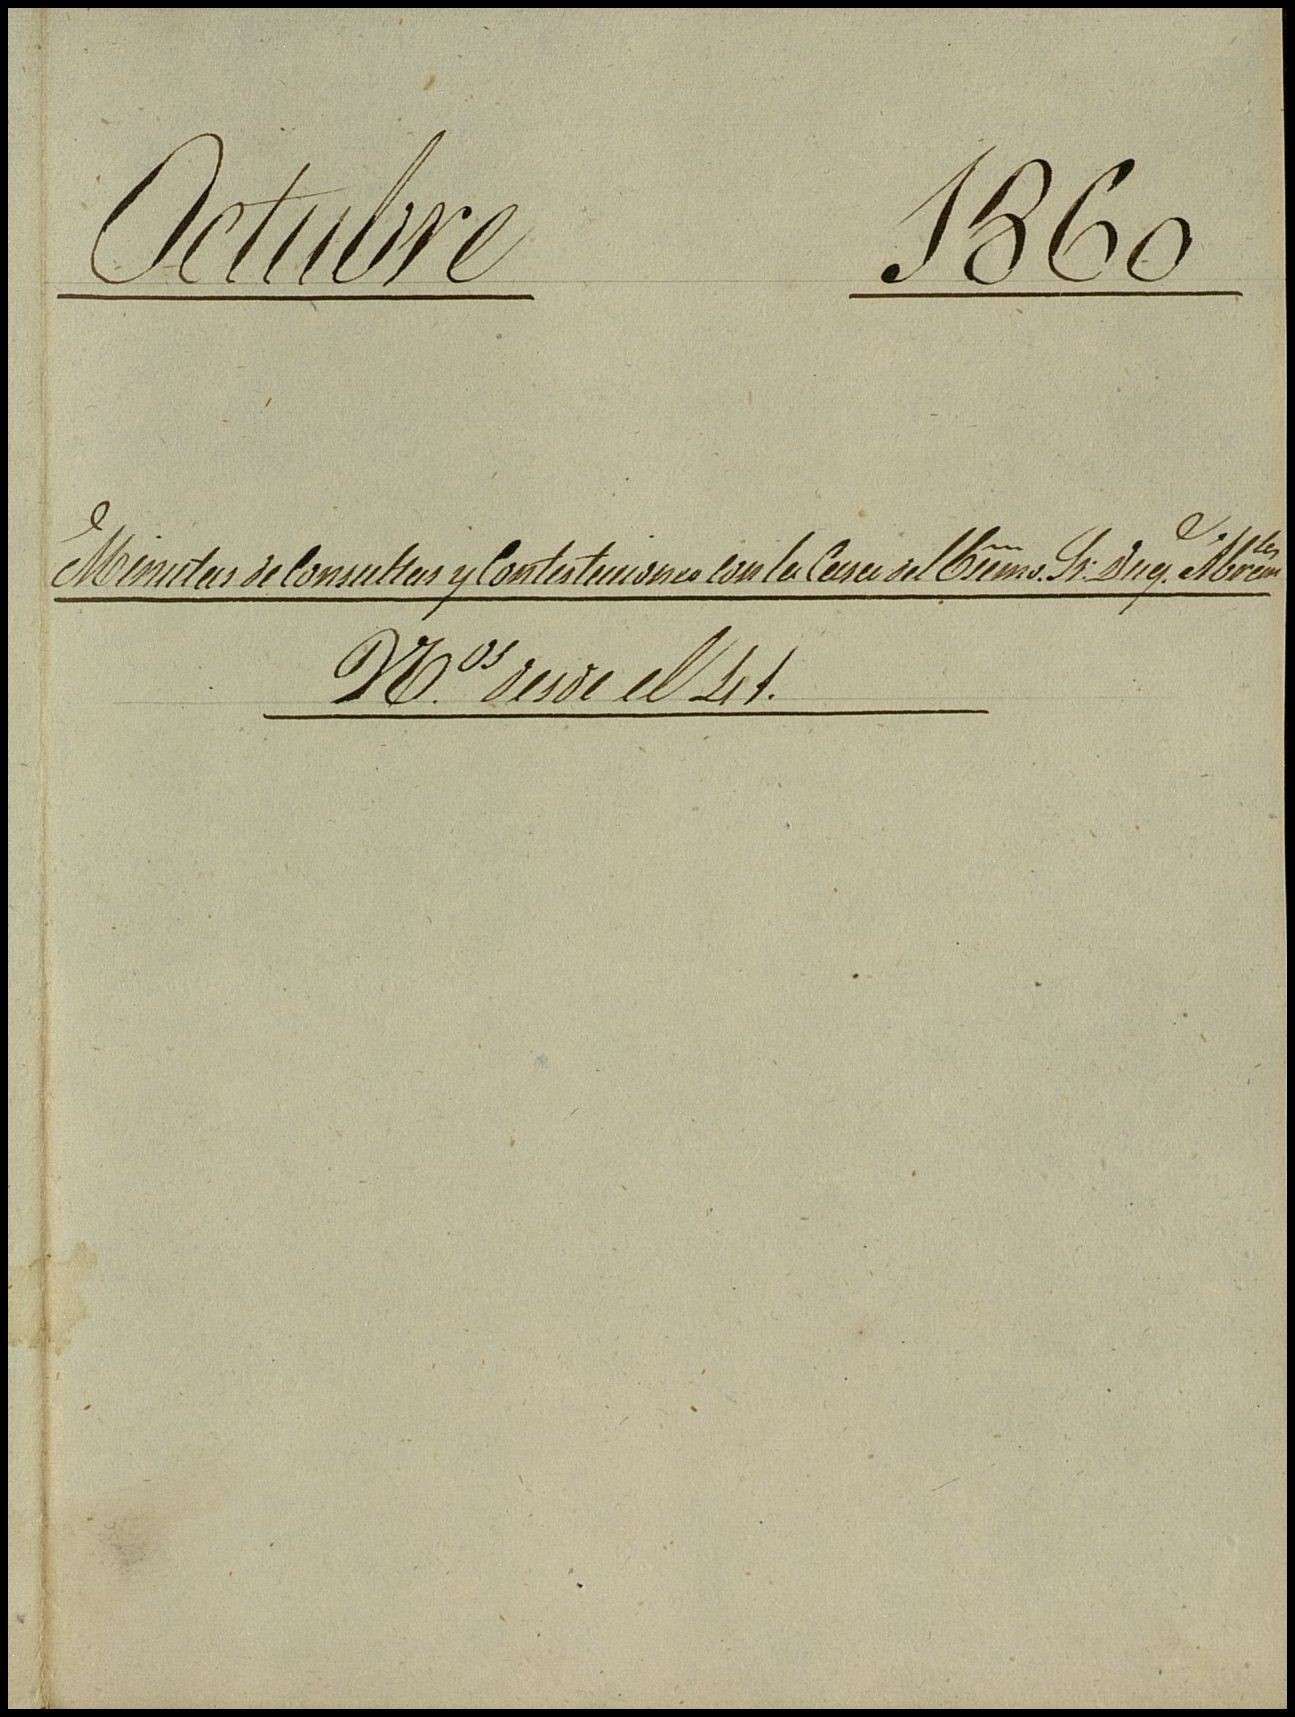 Octubre 1860
Minutas de Consultas y Contestaciones con la Casa del Exmo. Sr. Duq.e Abrantes
N.os desde el 41.